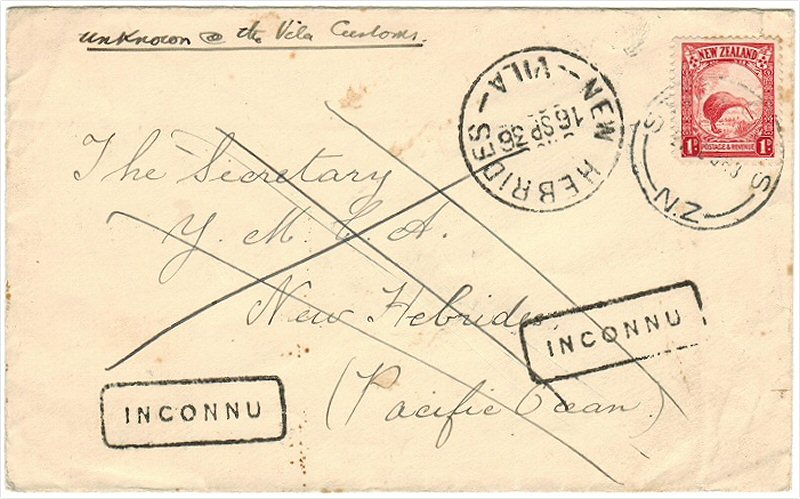 unknown @ the Vila Customs.
NEW HEBRIDES
VILA
16 SP 36
NEW ZEALAND
1D
POSTAGE & REVENUE
1D
NZ
The Secretary
Y. M. C. A.
New Hebrides,
(Pacific Ocean)
INCONNU
INCONNU